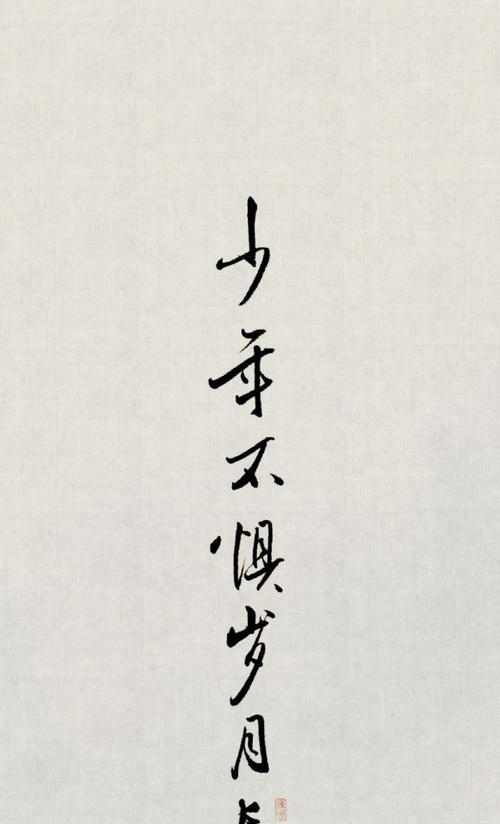 少年不惧岁月